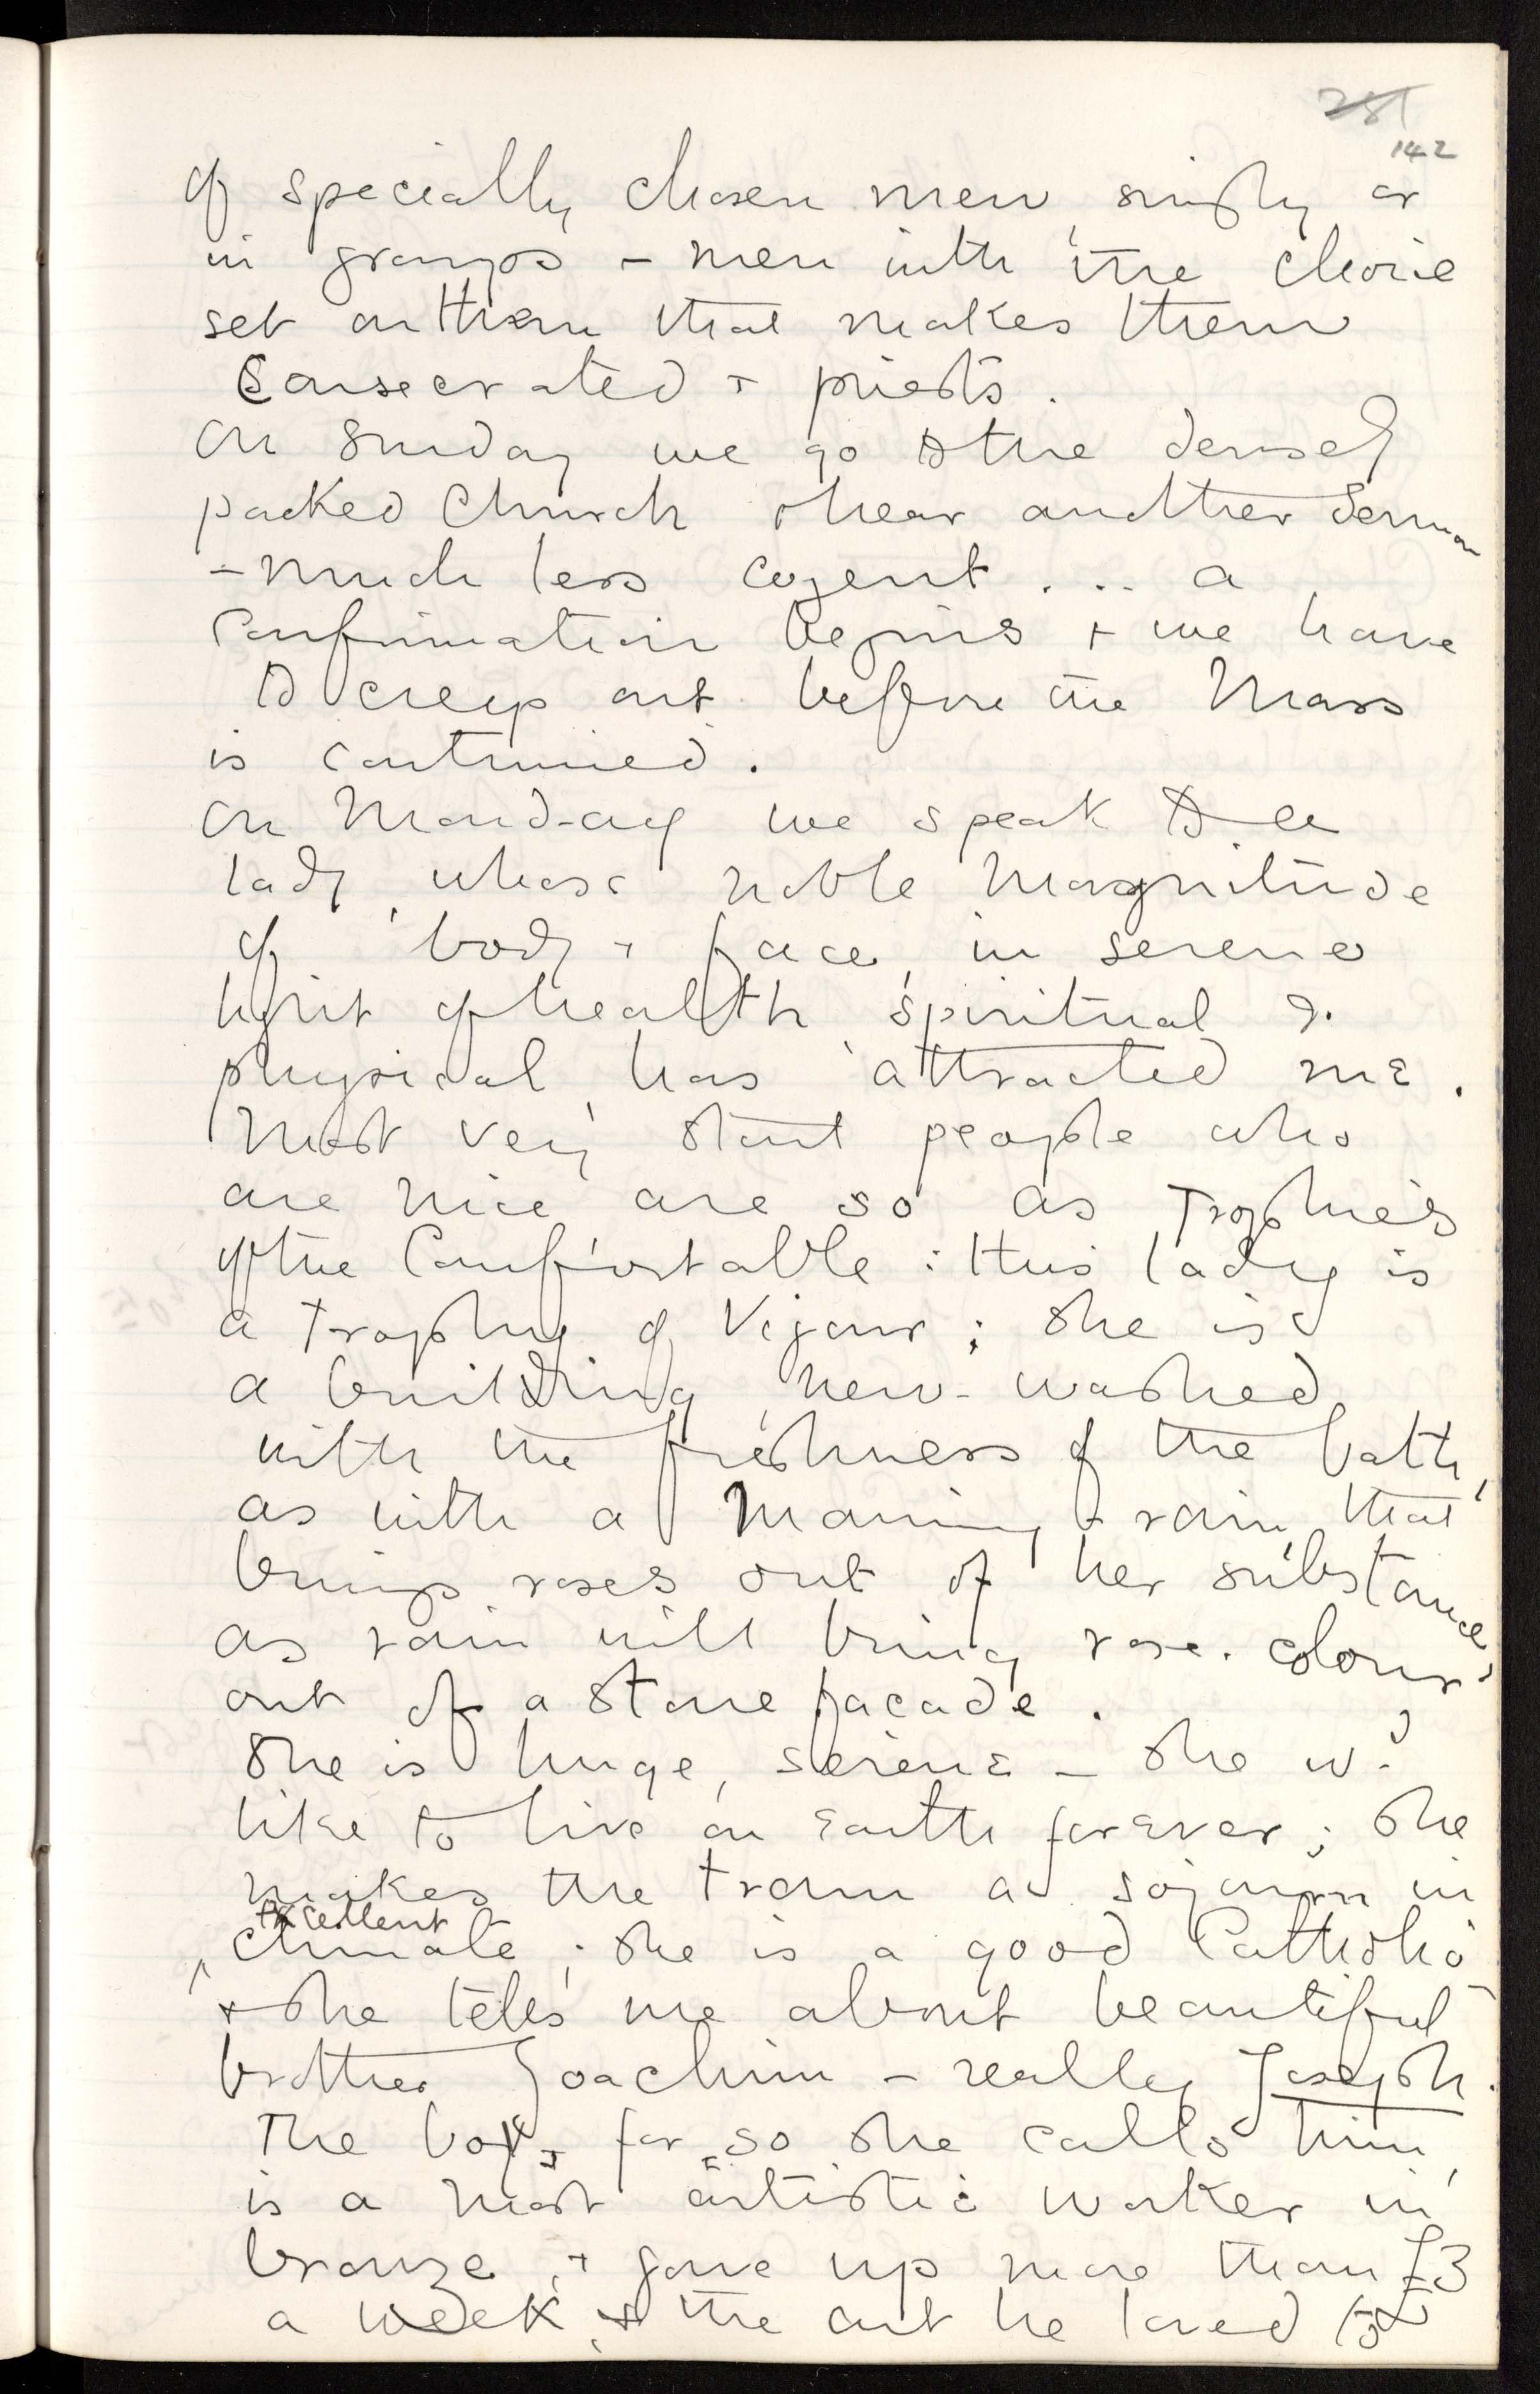 281
142
of specially chosen men, singly or
in groups – men with the choice
set on them that makes them
Consecrated + priests.
On Sunday we go to the densely
packed Church + hear another Sermon
– much less cogent... a
Confirmation begins + we have
to creep out before the Mass
is continued.
On Mond-ay we speak to a
lady, whose noble magnitude
of body + face, in serene
light of health, spiritual &
physical, has attracted me.
Most very stout people who
are nice are so as Trophies
of the Comfortable : this lady is
a trophy of Vigour ; she is
a building, new-washed
with the freshness of the bath,
as with a morning-rain, that
brings roses out of her substance,
as rain will bring rose-colour
out of a stone façade.
She is huge, serene – she wd
like to live on Earth forever ; she
makes the tram a sojourn in
Excellent
^ climate ; she is a good Catholic
+ she tells me about beautiful
brother Joachim – really Joseph.
The boy, for so she calls him,
is a most artistic worker in
bronze, + gave up more than £3
a week, + the art he loved to